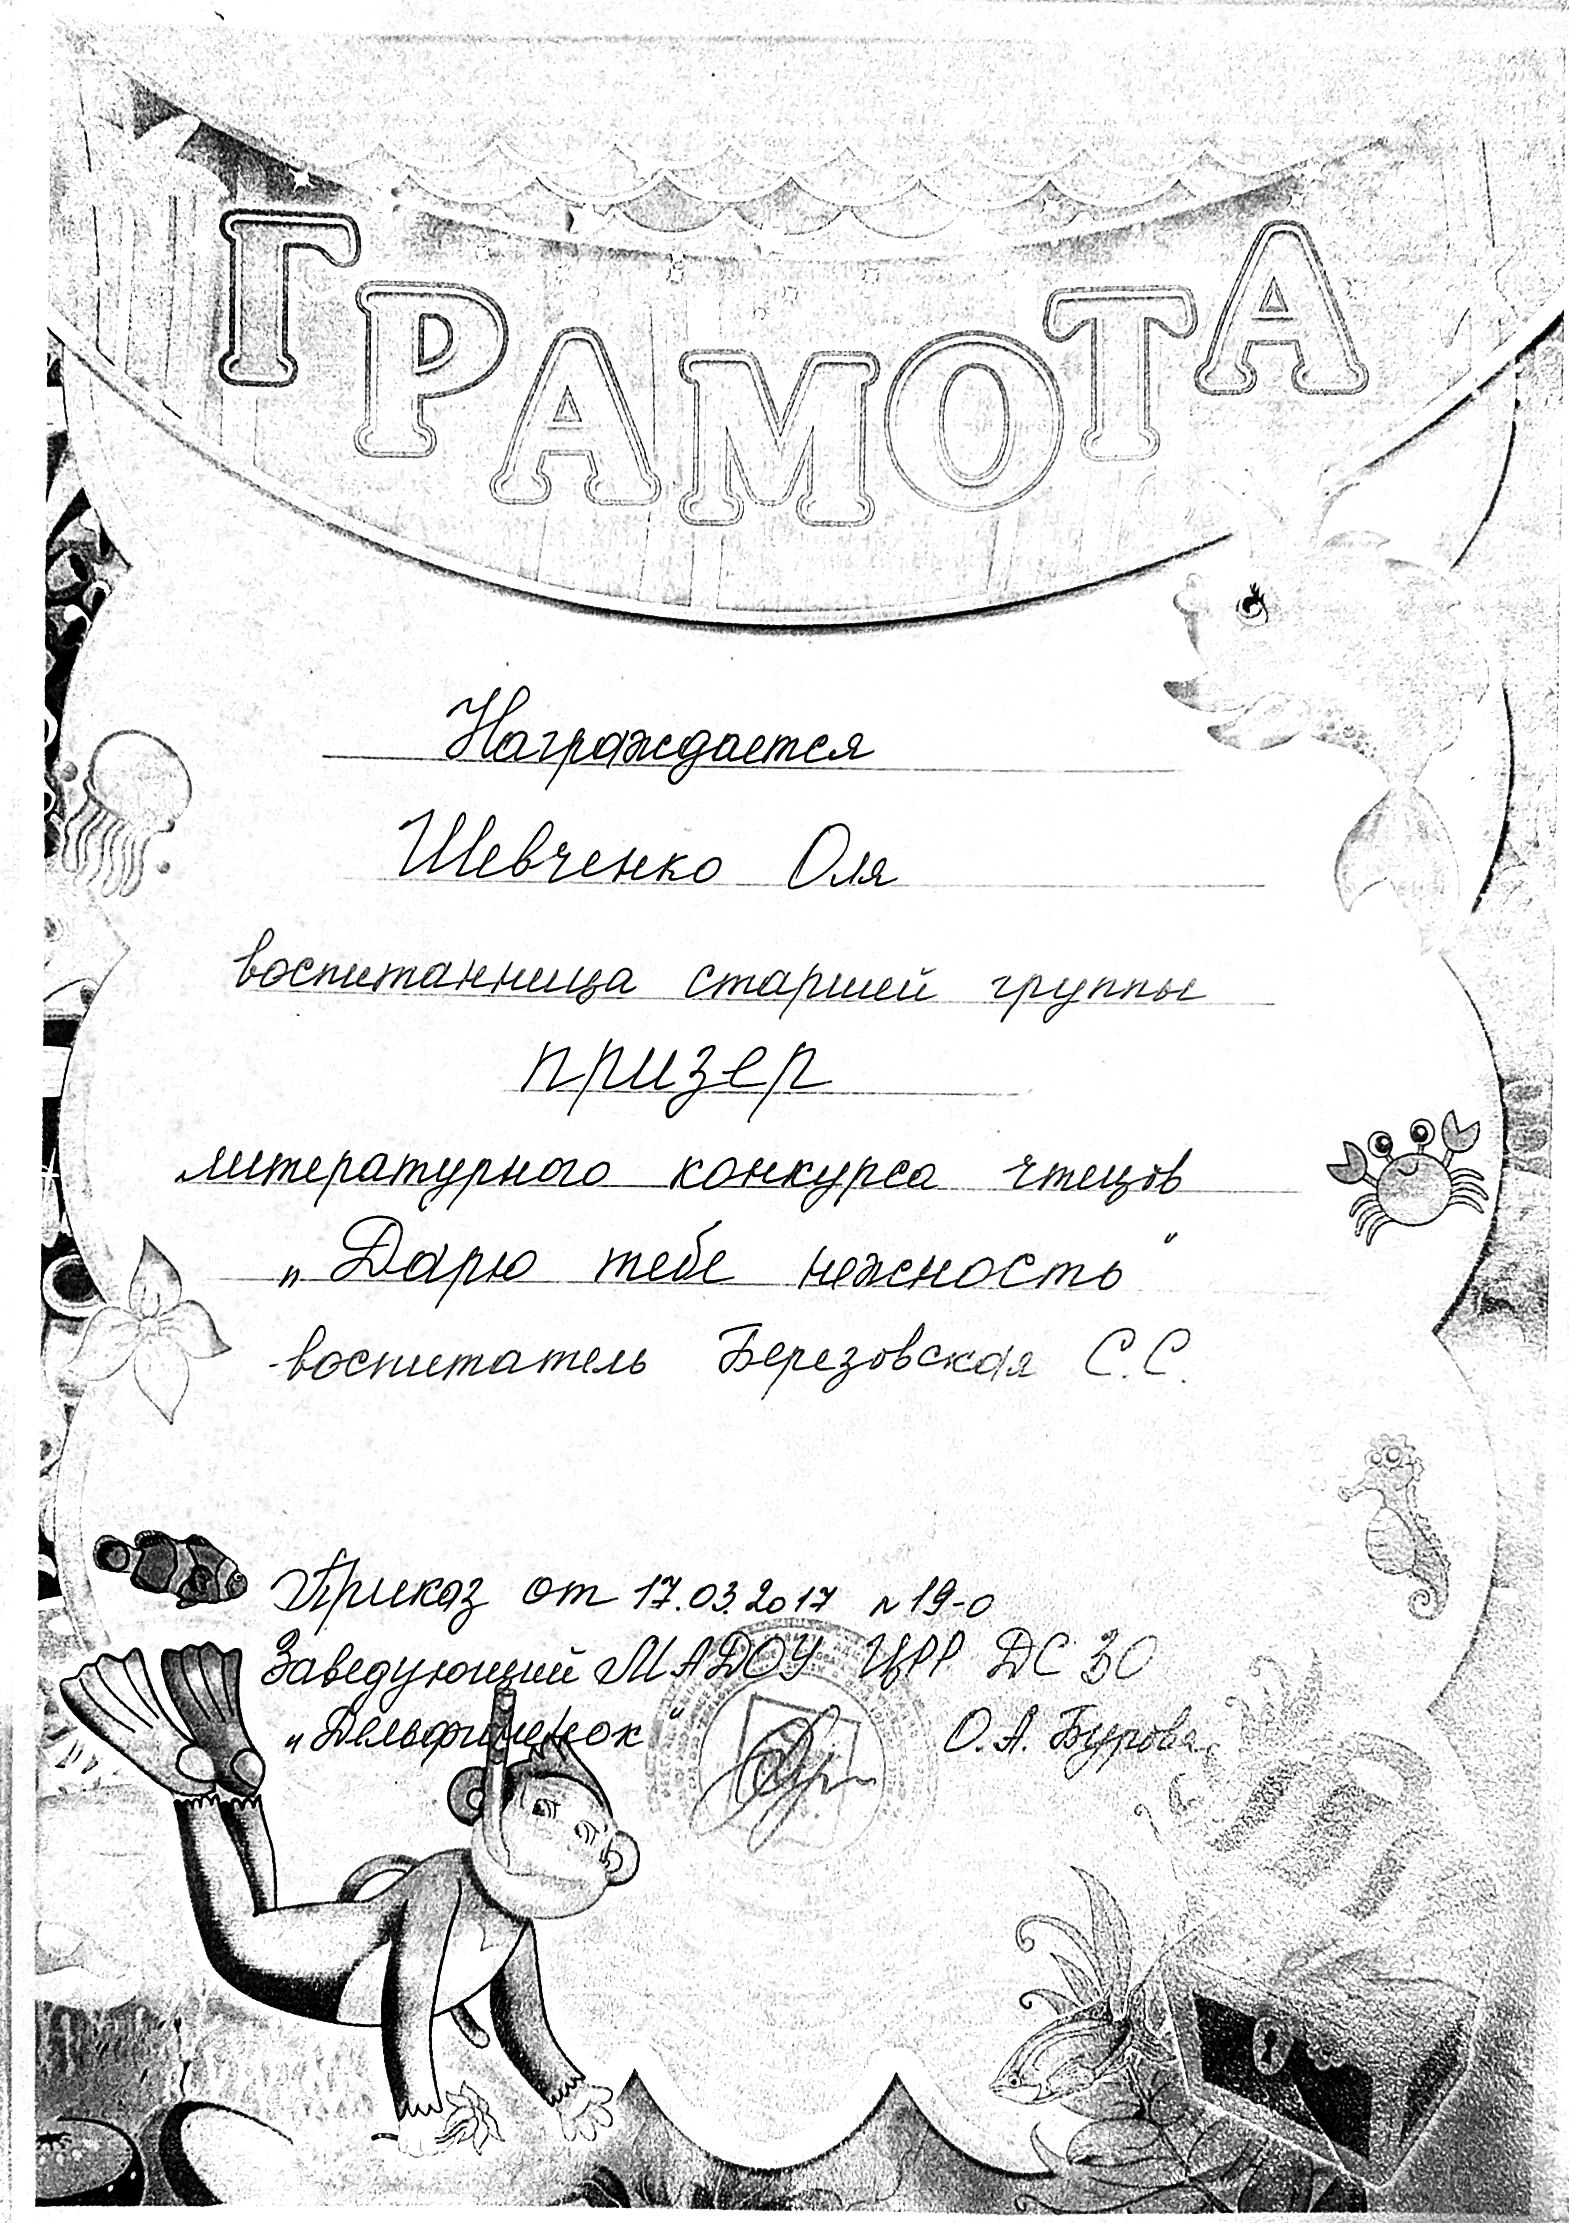 ГРАМОТА
Награждается
Шевченко Оля
воспитанница старшей группы
призер
литературного конкурса чтецов
„Дарю тебе нежность“
воспитатель Березовская С.С.
Приказ от 17.03.2017 №19-о
Заведующий МАДОУ ЦРР ДС 30
„Дельфиненок“ О.А. Бурова